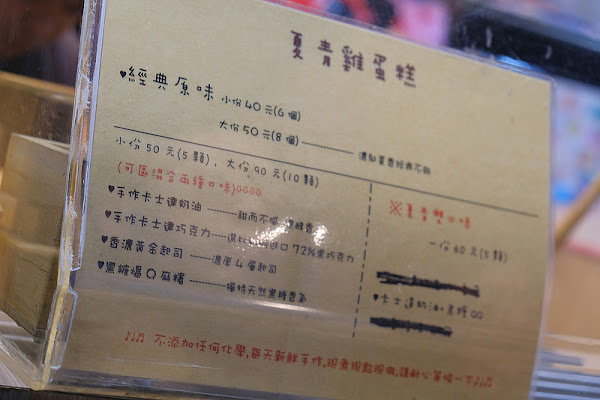 夏青雞蛋糕
♥經典原味 小份40元(6個)
大份50元(8個)
濃郁蛋香經典不敗
小份50元(5顆), 大份90元(10顆)
(可區混合兩種口味)
♥手作卡士達奶油 甜而不膩
♥手作卡士達巧克力 進口72%黑巧克力
♥香濃黃金起司 濃厚4層起司
♥黑糖爆Q麻糬 獨特天然黑糖香氣
※夏青雙口味
一份60元(5顆)
♥卡士達奶油+黑糖QQ
♪♪♫ 不添加任何化學,每天新鮮手作,現煮現點現做,請耐心等候一下♪♪♫